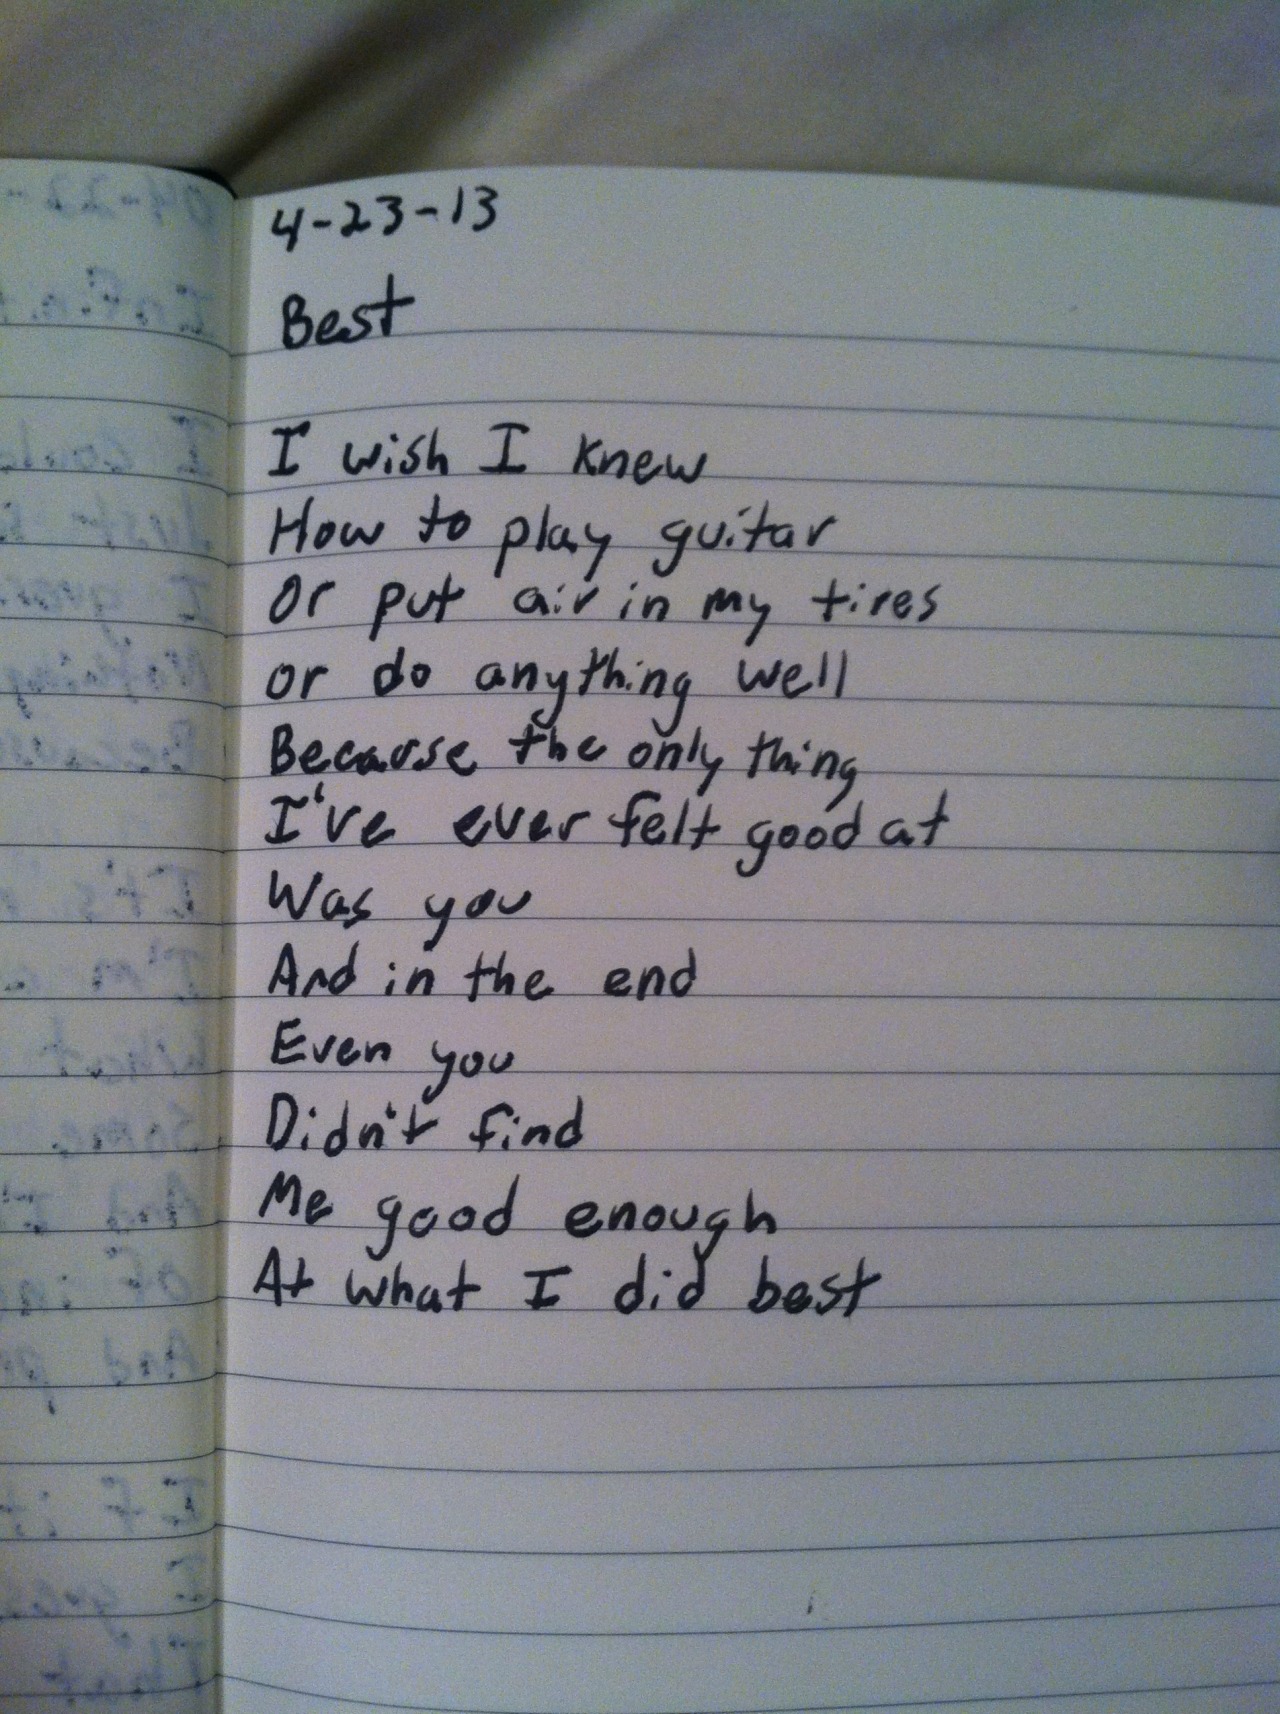 4-23-13
Best
I wish I knew
How to play guitar
Or put air in my tires
or do anything well
Because the only thing
I've ever felt good at
Was you
And in the end
Even you
Didn't find
Me good enough
At what I did best